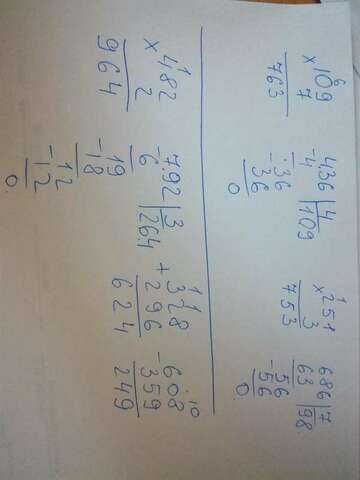 6
×109
7
763
-436|4
4 |109
-36
36
0
1
×251
3
753
686|7
63 |98
-56
56
0.
1
×482
2
964
-792|3
6 |264
-19
18
-12
12
0.
1 1
+328
296
624
10
-608
359
249